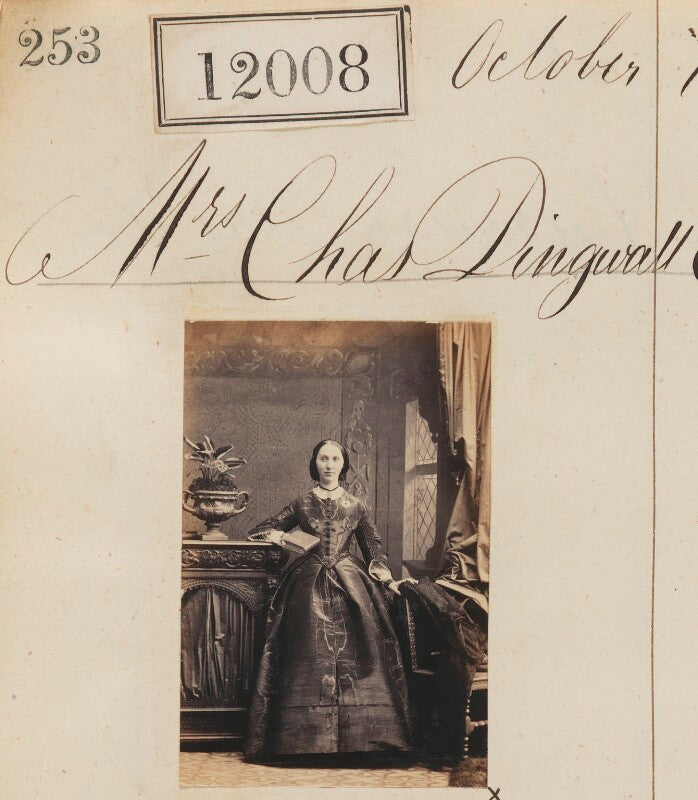 253
12008
October
Mrs Chas Dingwall
x